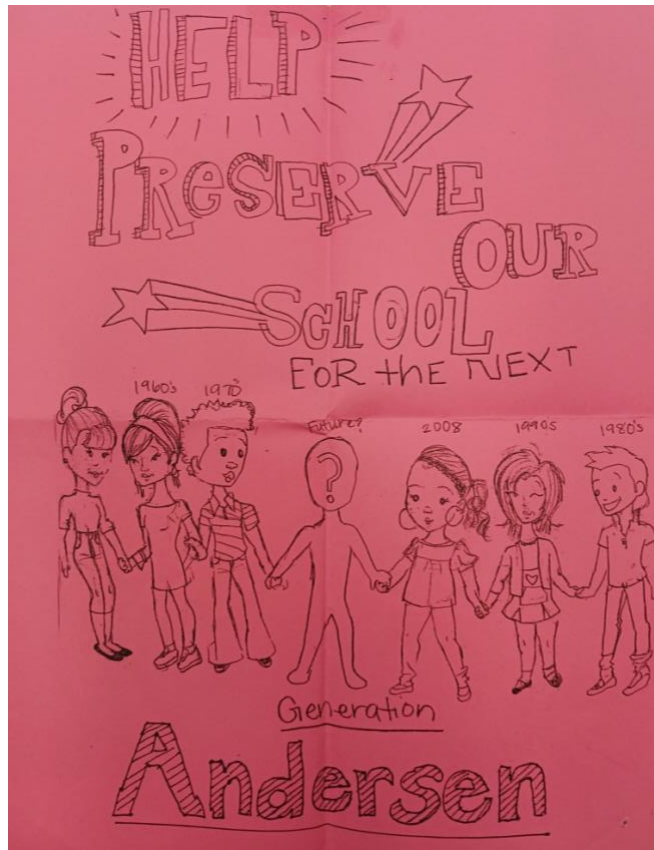 HELP
PReSERVE
OUR
SCHOOL
FOR thE NEXT
1960's 1970's Future? 2008 1990s 1980's
?
Generation
Andersen